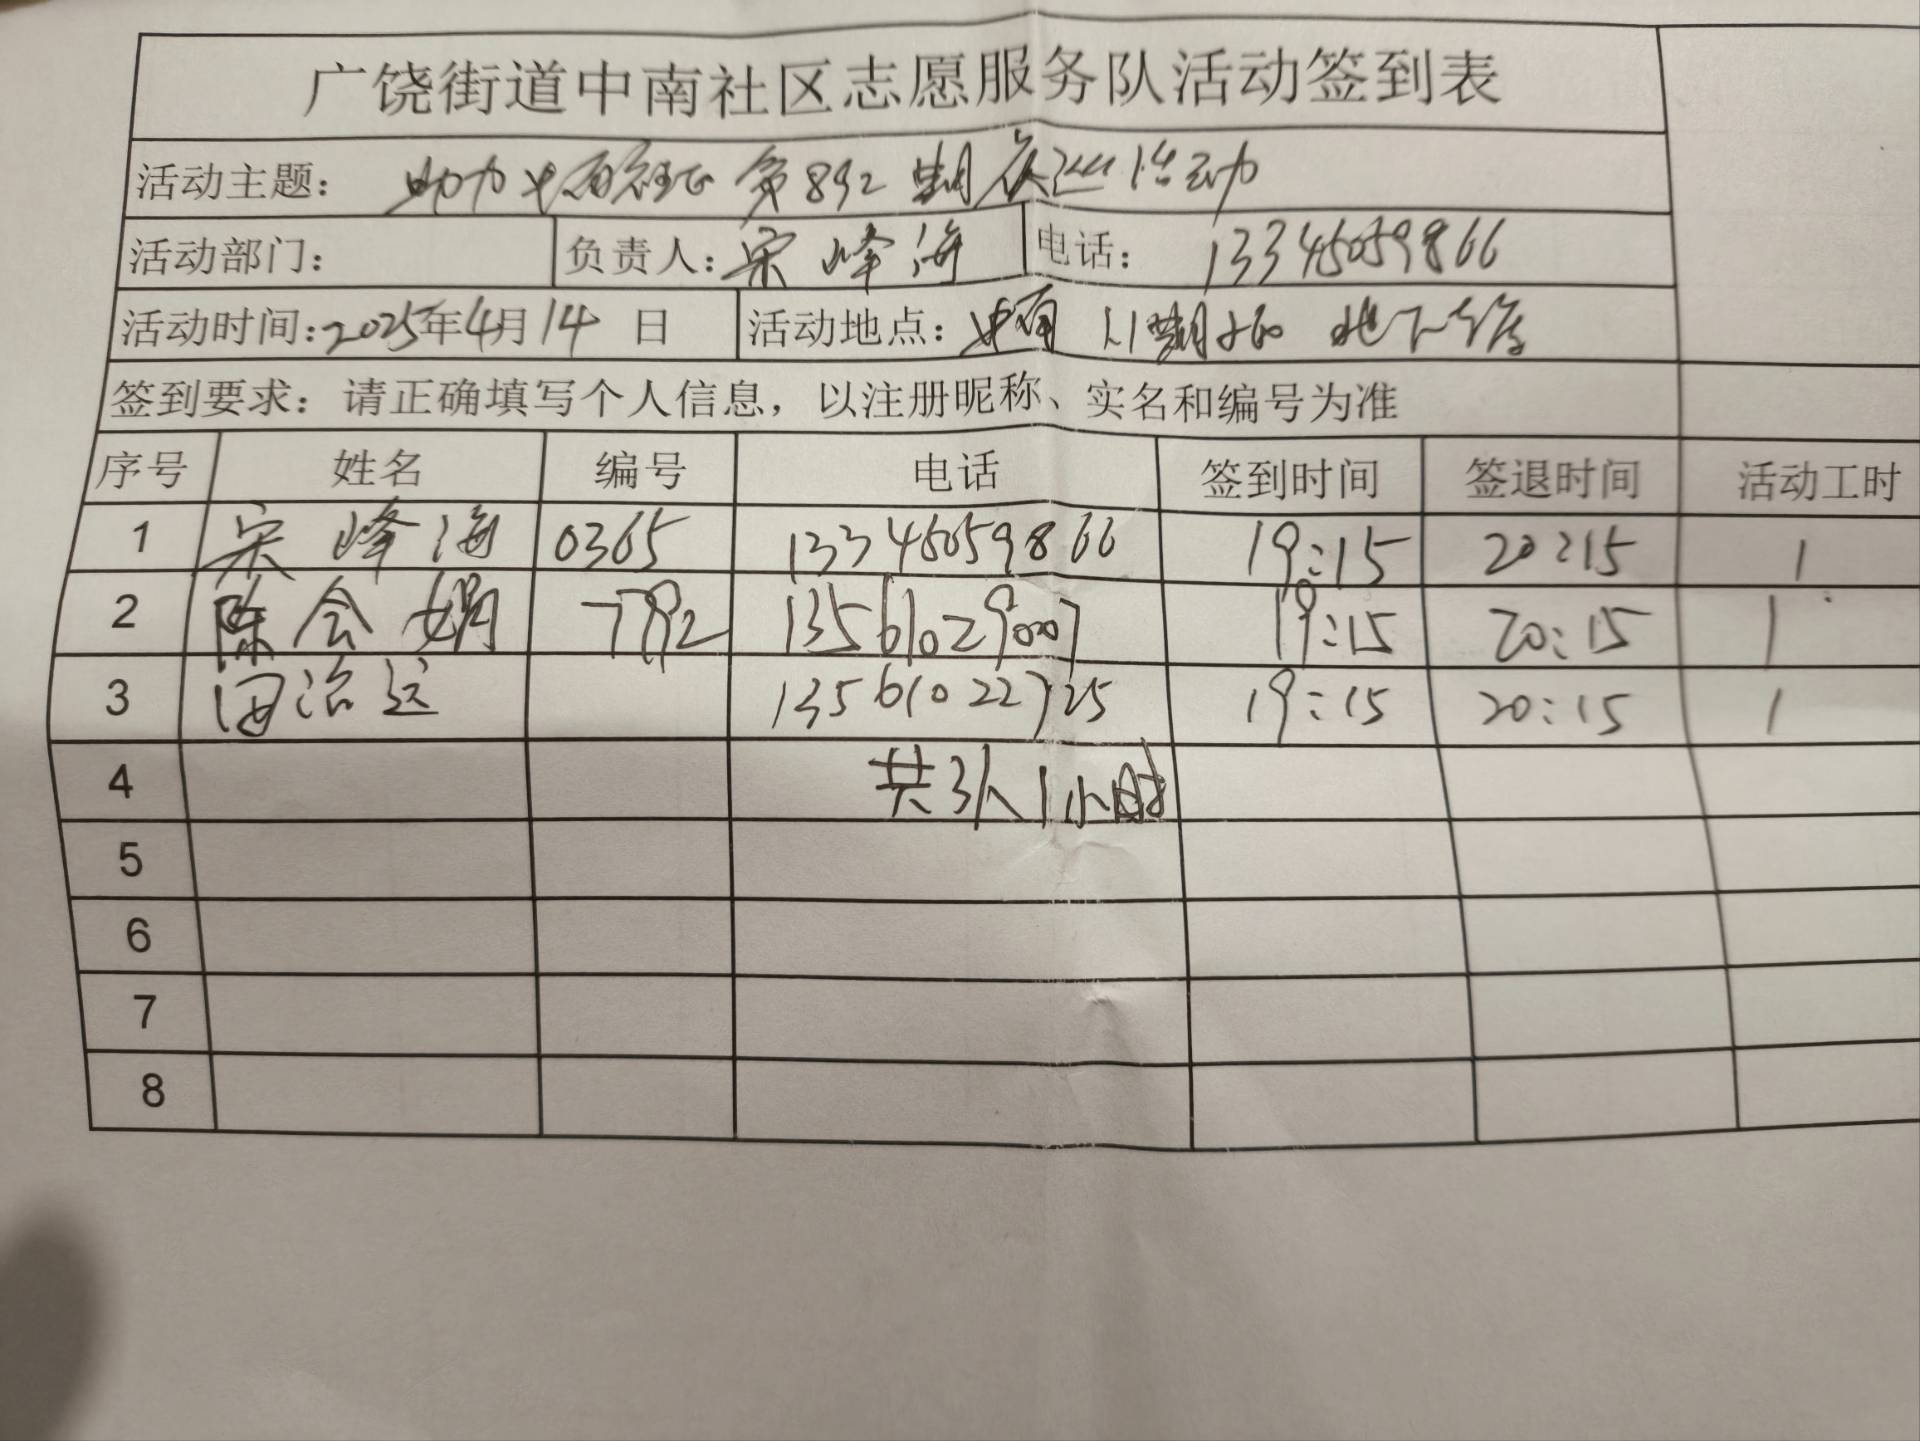 广饶街道中南社区志愿服务队活动签到表
活动主题: 助力 第892期夜巡活动
活动部门: 负责人: 宋峰海 电话: 13345059866
活动时间: 2025年4月14日 活动地点: 中南 期 地下车库
签到要求: 请正确填写个人信息, 以注册昵称、实名和编号为准
序号 姓名 编号 电话 签到时间 签退时间 活动工时
1 宋峰海 0365 13345059866 19:15 20:15 1
2 陈会娟 7792 13561029007 19:15 20:15 1
3 治远 13561022725 19:15 20:15 1
4 共3人1小时
5
6
7
8